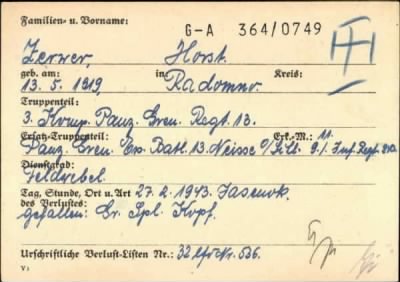 Familien- u. Vorname:
G-A 364/0749
Zerwer, Horst.
geb. am: in Kreis:
13. 5. 1919, Radomno.
Truppenteil:
3. Komp. Panz. Gren. Regt. 13.
Ersatz-Truppenteil: Erk.-M.: 11.
Panz. Gren. Ers. Batl. 13. Neisse O/Schl. 9./ Inf. Regt.
Dienstgrad:
Feldwebel.
Tag, Stunde, Ort u. Art 27. 2. 1943. Jasenok.
des Verlustes:
gefallen: Gr. Spl. Kopf.
Urschriftliche Verlust-Listen Nr.: 32 Nr. 536.
V1